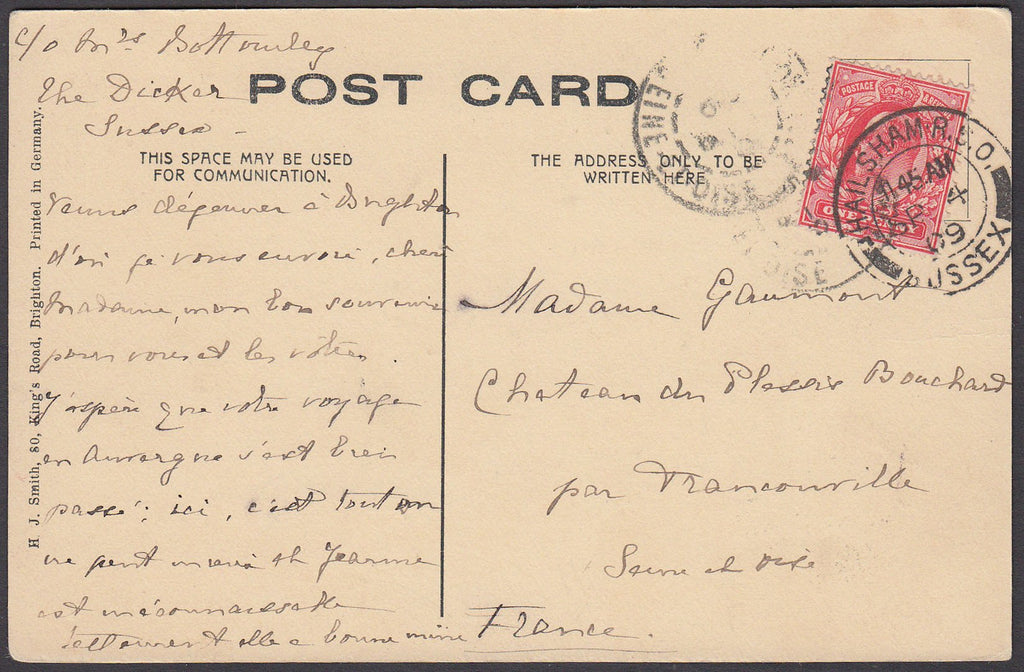 c/o Mrs Bottomley
The Dicker
Sussex
POST CARD
THIS SPACE MAY BE USED
FOR COMMUNICATION.
THE ADDRESS ONLY TO BE
WRITTEN HERE
Venus déjeuner à Brighton
d'où je vous envoie, chère
Madame, mon bon souvenir
pour vous et les vôtres.
J'espère que votre voyage
en Auvergne s'est bien
passé; ici, c'est tout
ne peut mieux et Jeanne
est méconnaissable
tellement elle a bonne mine
Madame Gaumont
Chateau du Plessis Bouchard
par Franconville
Seine et Oise
France.
H. J. Smith, 80, King's Road, Brighton. Printed in Germany.
POSTAGE
HAILSHAM R.S.O.
11.45 AM
SP 4
09
SUSSEX
OISE
OISE